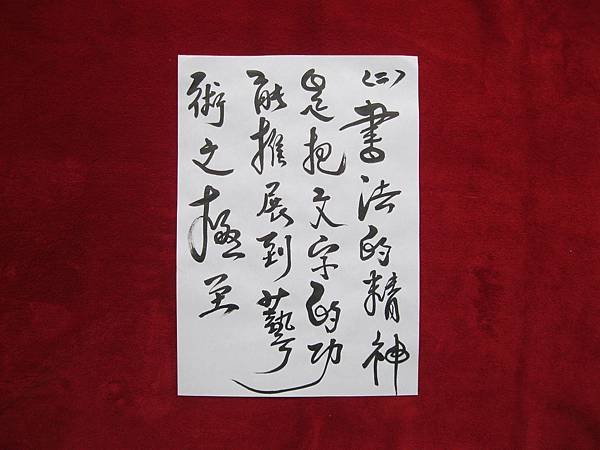 （二）書法的精神
是把文字的功
能推展到藝
術之極至